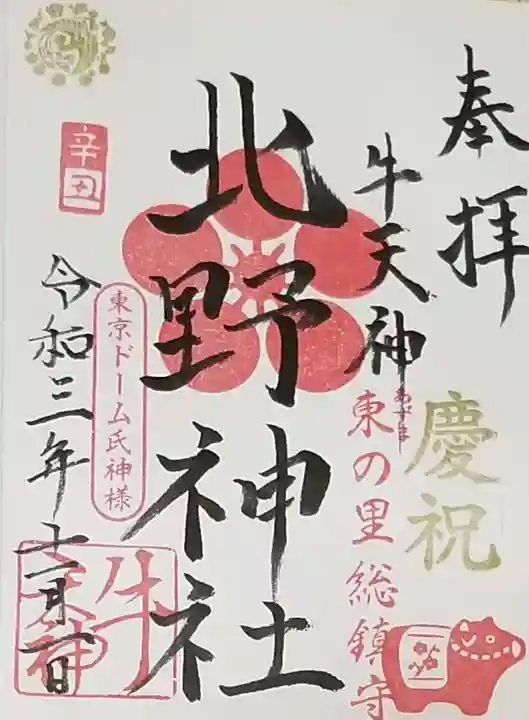 奉拝
慶祝
牛天神
東の里総鎮守
あずま
北野神社
東京ドーム氏神様
辛丑
令和三年十一月一日
牛天神